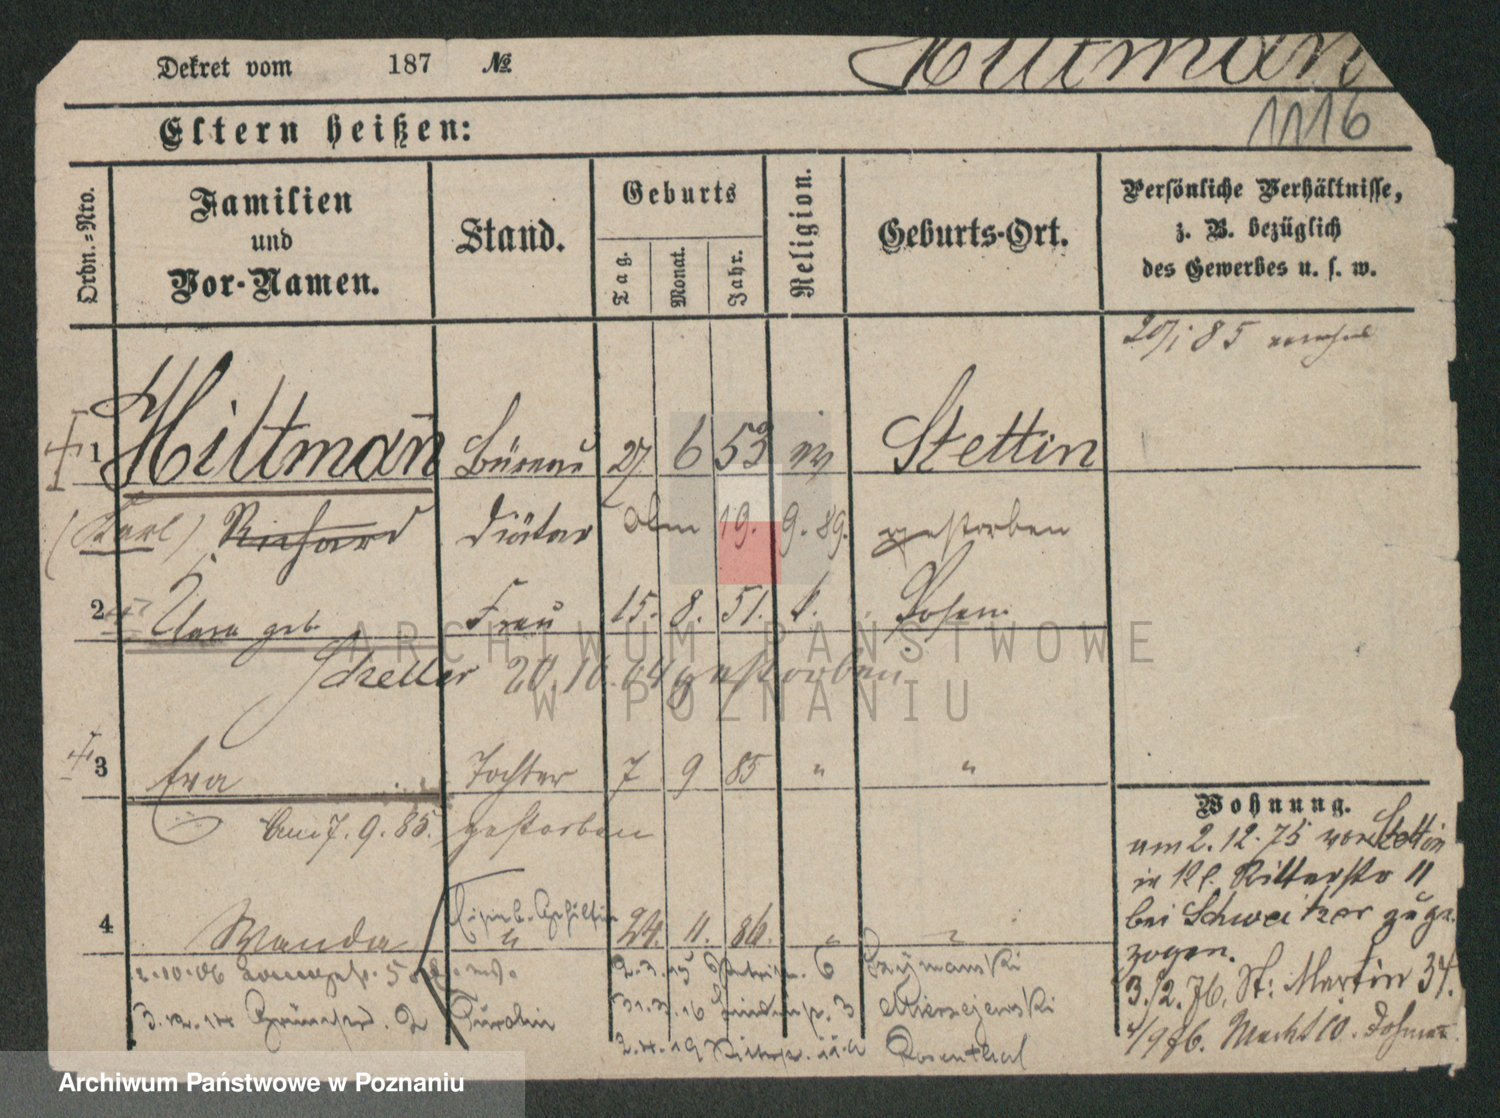 Dekret vom 187 № Hittman̄
1116
Eltern heißen:
Ordn.=Nro. Familien und Vor-Namen. Stand. Geburts Tag. Monat. Jahr. Religion. Geburts-Ort. Persönliche Verhältnisse, z. B. bezüglich des Gewerbes u. s. w.
20/1 85
1 Hittman̄ Büreau 27 6 53 ev Stettin
(Karl) Richard Diätar am 19. 9. 89. gestorben
2 Clara geb. Frau 15. 8. 51. k. Posen
Scheller 20.10.04 gestorben
3 Eva Tochter 7 9 85 " "
am 7. 9. 85. gestorben
Wohnung.
am 2. 12. 75 von Stettin
in Kl. Ritterstr 11
bei Schweitzer zuge-
zogen.
4 Wanda " 24. 11. 86. " "
2.10.06 5
3.12.14 2
2.3.15 6 Szymanski
31.3.16 3 Mierzejewski
2.4.19 Rosenthal
3./2. 76. St: Martin 34.
4/9 76. Markt 10.
ARCHIWUM PAŃSTWOWE
W POZNANIU
Archiwum Państwowe w Poznaniu